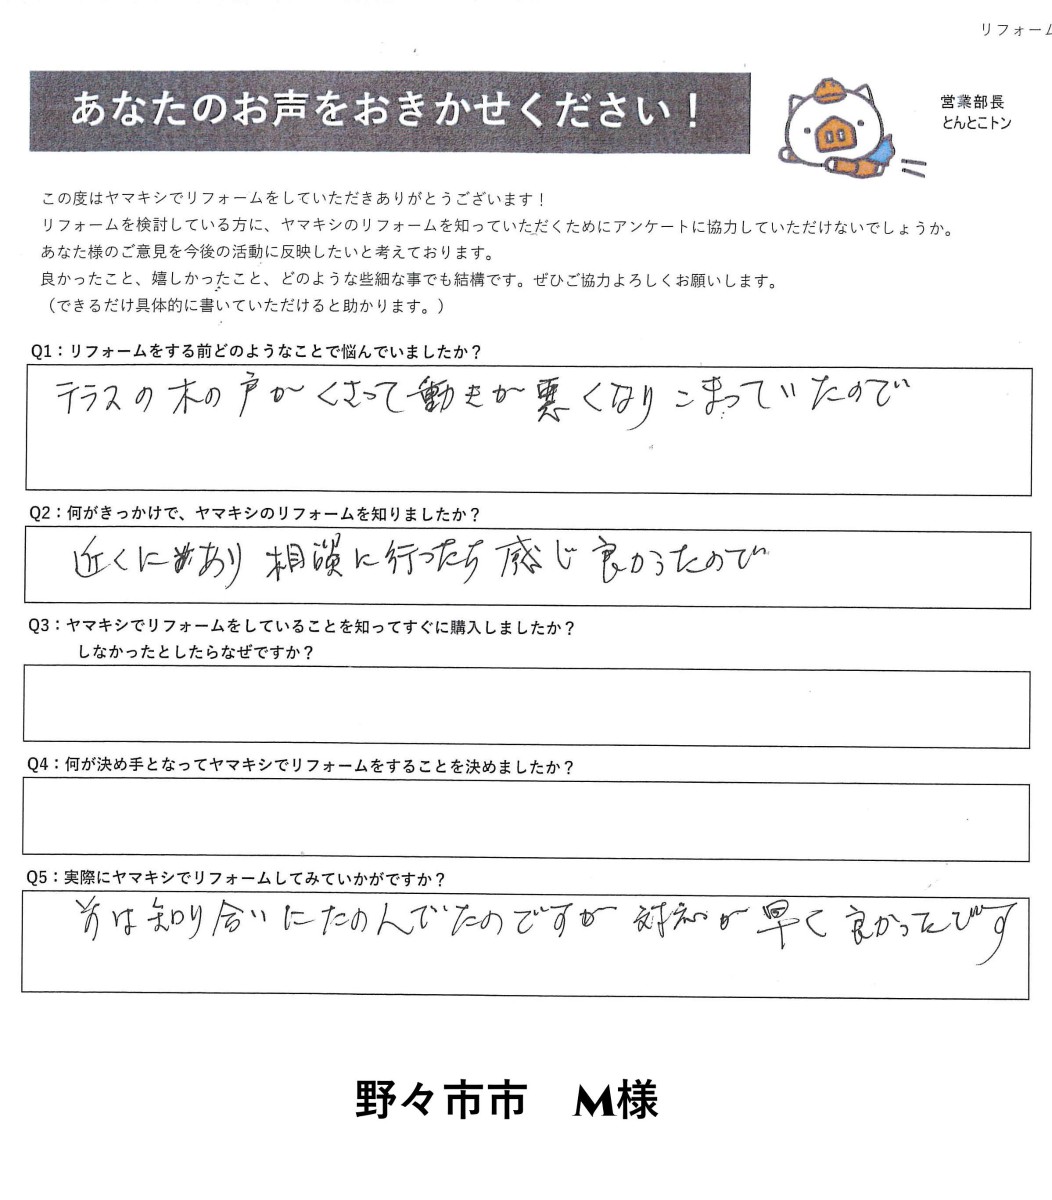 リフォーム
あなたのお声をおきかせください！
営業部長
とんとこトン
この度はヤマキシでリフォームをしていただきありがとうございます！
リフォームを検討している方に、ヤマキシのリフォームを知っていただくためにアンケートに協力していただけないでしょうか。
あなた様のご意見を今後の活動に反映したいと考えております。
良かったこと、嬉しかったこと、どのような些細な事でも結構です。ぜひご協力よろしくお願いします。
（できるだけ具体的に書いていただけると助かります。）
Q1：リフォームをする前どのようなことで悩んでいましたか？
テラスの木の戸がくさって動きが悪くなりこまっていたので
Q2：何がきっかけで、ヤマキシのリフォームを知りましたか？
近くにあり 相談に行ったら 感じ良かったので
Q3：ヤマキシでリフォームをしていることを知ってすぐに購入しましたか？
しなかったとしたらなぜですか？
Q4：何が決め手となってヤマキシでリフォームをすることを決めましたか？
Q5：実際にヤマキシでリフォームしてみていかがですか？
前は知り合いにたのんでたのですが 対応が早くて良かったです
野々市市　M様